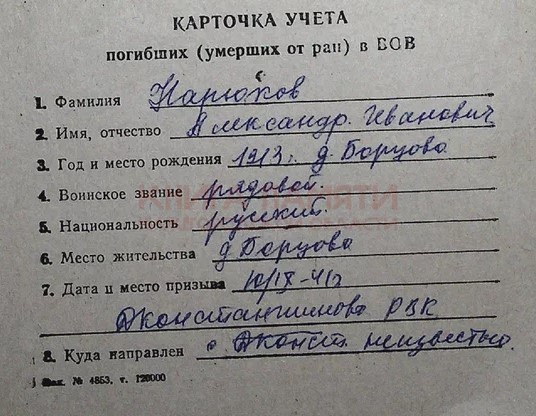 КАРТОЧКА УЧЕТА
погибших (умерших от ран) в ВОВ
1. Фамилия Нарюхов
2. Имя, отчество Александр Иванович
3. Год и место рождения 1913г. д. Борцово
4. Воинское звание рядовой.
5. Национальность русский.
6. Место жительства д Борцово
7. Дата и место призыва 10/IX-41г
Дконстантиново РВК
8. Куда направлен неизвестно.
Зак. № 4853, т. 120000
КНИГА ПАМЯТИ
ОБЛАСТИ